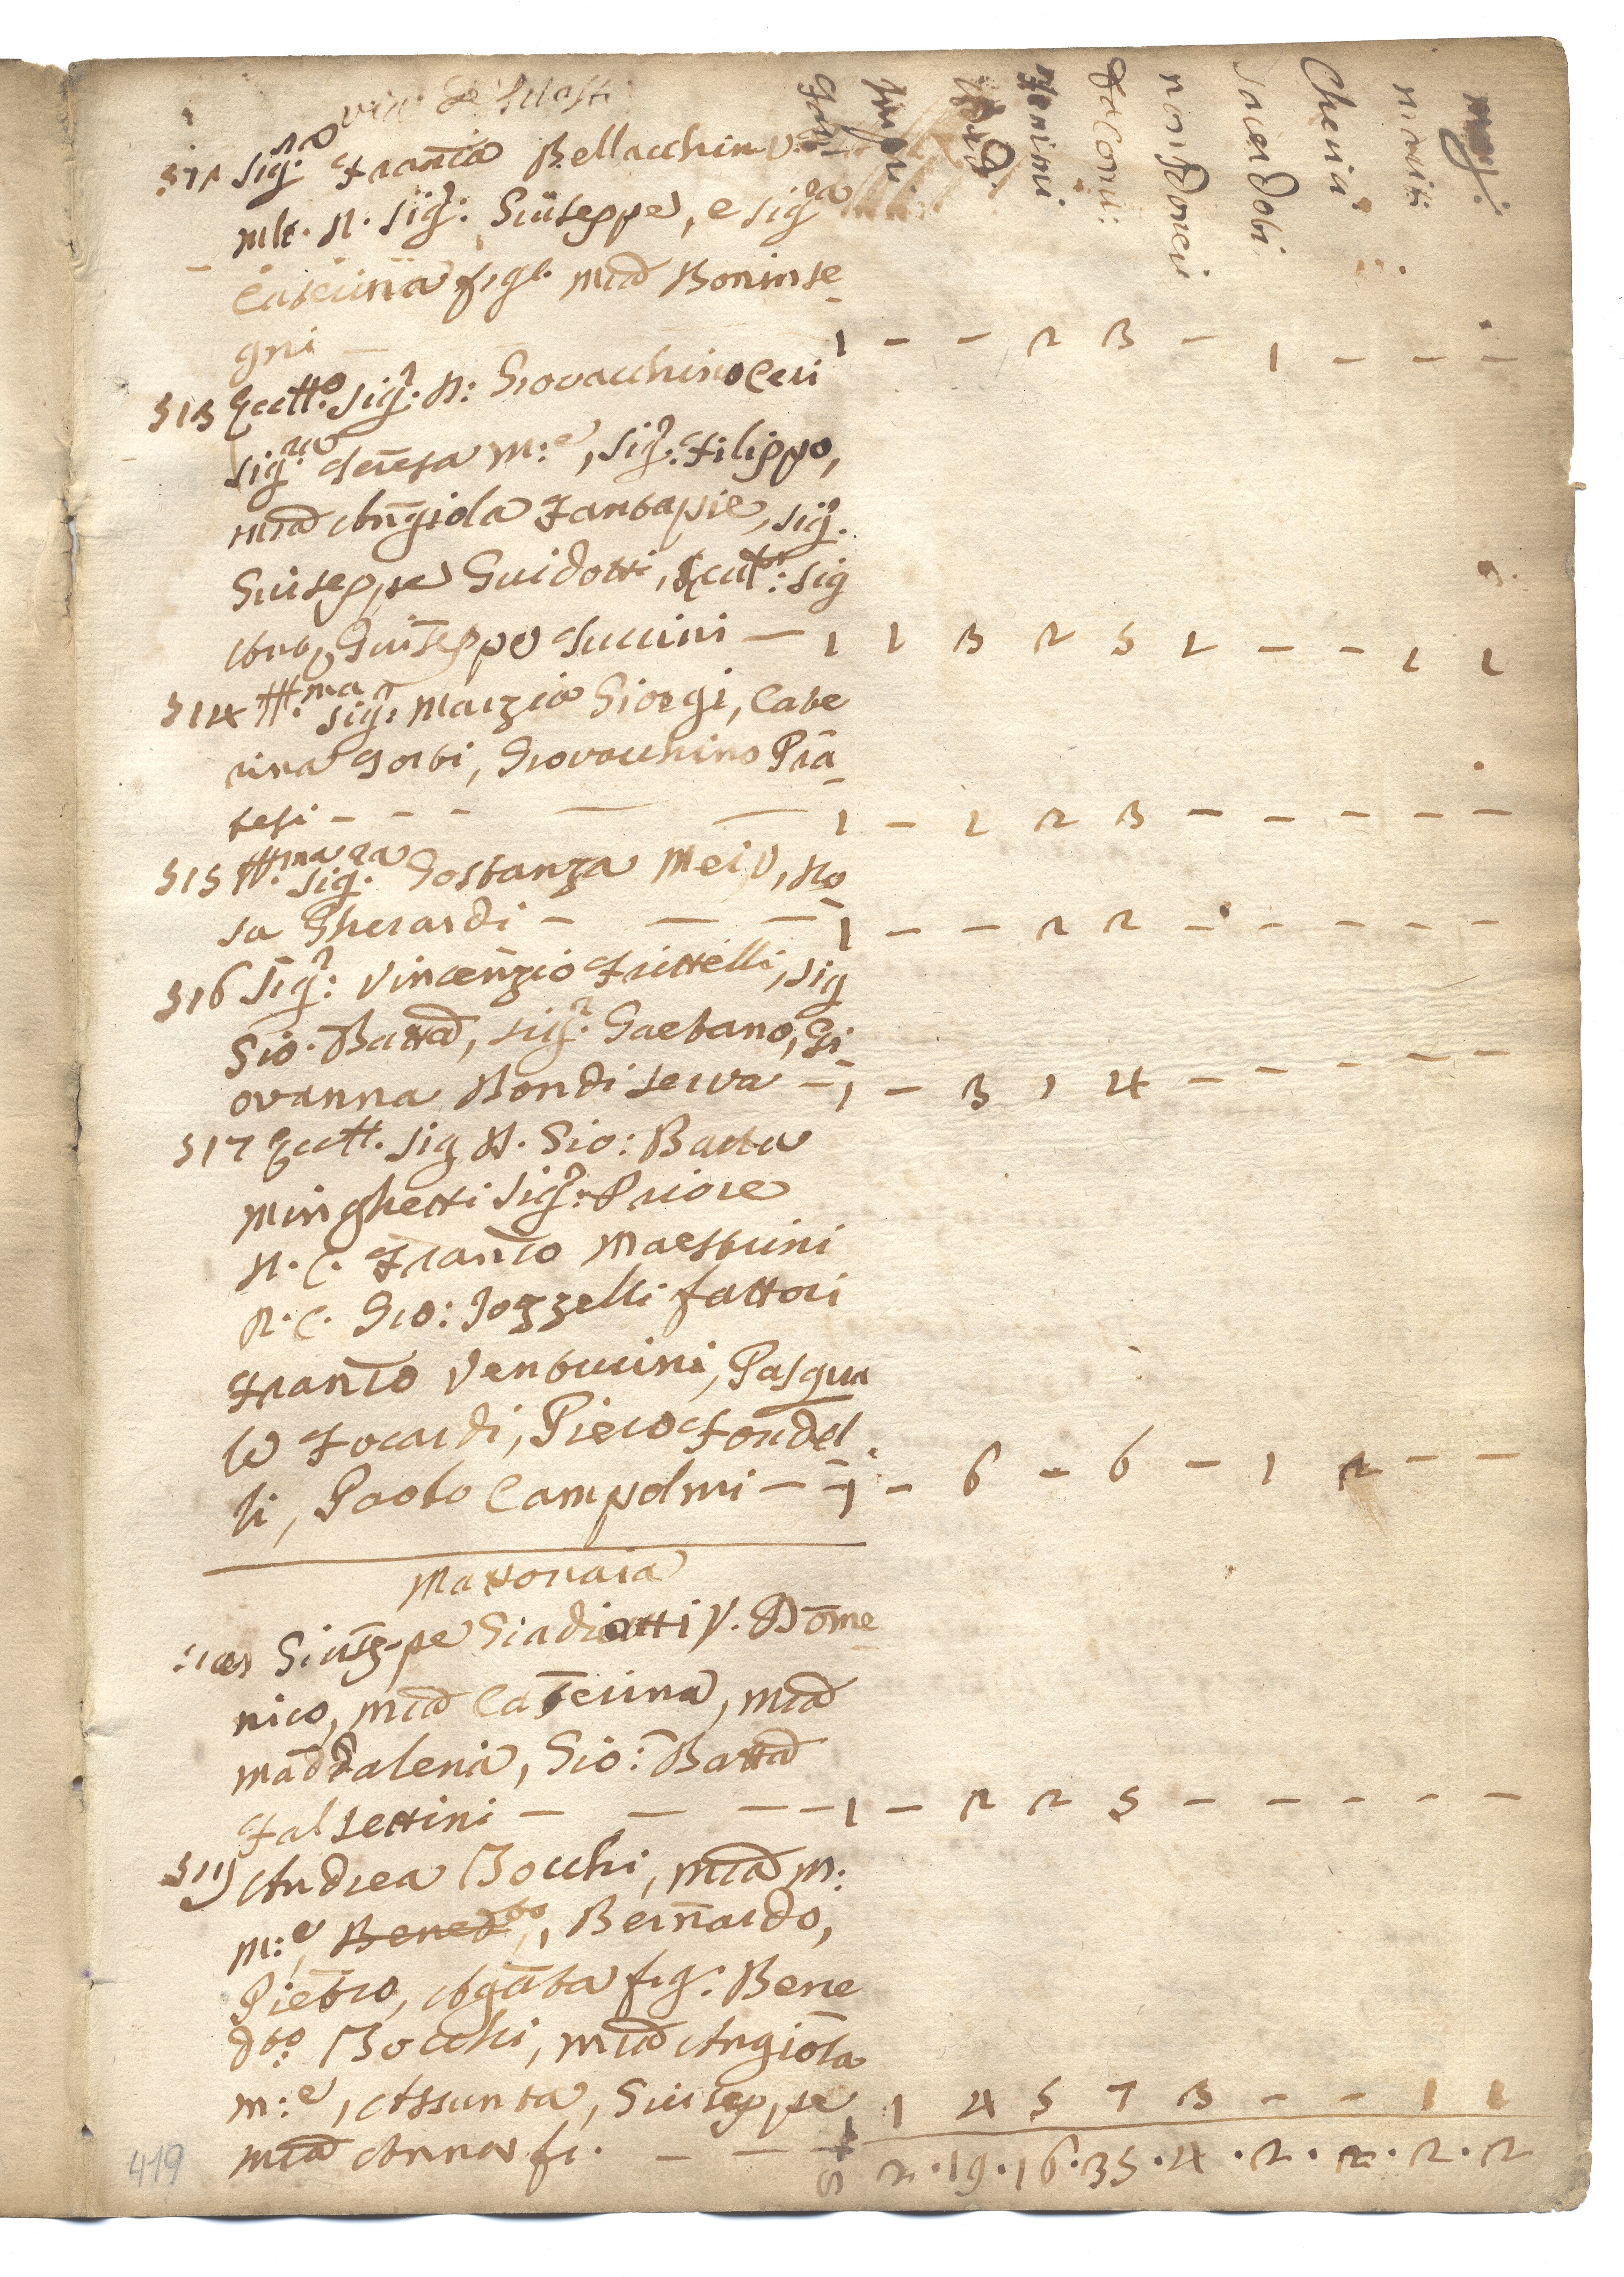 via de
Fam. Huomi masc. femine facomu: non Comu: sacerdoti Cherici mariti mog:
Sig:ra Fran:ca Bellacchini V.
M:e R. Sig:r Giuseppe, e Sig:ra
Caterina figl. M:a Boninse
gni — 1 — — 2 3 — 1 — — —
313 Ecc:mo Sig:r D: Giovacchino Ceri
Sig:ra Teresa M:e, Sig:r Filippo,
M:a Angiola Fantapie, Sig:r
Giuseppe Guidotti, Ecc: Sig
Giuseppe Tuccini — 1 1 3 2 5 1 — — 1 1
314 Ill:ma Sig:ra Marzia Giorgi, Cate
rina Gorbi, Giovacchino Pra
tesi — — — 1 — 1 2 3 — — — — —
315 Ill:ma Sig:ra Gostanza Mei V, Ro
sa Gherardi — — — 1 — — 2 2 — — — — —
316 Sig:r Vincenzio Frittelli, Sig
Gio. Batta, Sig:r Gaetano, Gi
ovanna Bondi serva — 1 — 3 1 4 — — — — —
317 Ecc:. Sig D. Gio: Batta
Minghetti Sig:r Priore
R. C. Fran:co Maestrini
R. C. Gio: Iozzelli fattori
Fran:co Venturini, Pasqua
le Focardi, Piero Fondel
li, Paolo Campolmi — — 1 — 6 — 6 — 1 2 — —
Mattonaia
Giuseppe Giadiotti V. Dome
nico, M:a Caterina, M:a
Maddalena, Gio: Batta
Falsettini — — — 1 — 2 2 5 — — — — —
319 Andrea Bocchi, M:a M:
M:e, Bened:to, Bernardo,
Pietro, Agata fig: Bene
d:to Bocchi, M:a Angiola
M:e, Assunta, Giuseppe 1 4 5 7 3 — — 1 1
M:a Anna fi. — — 8 2 · 19 · 16 · 35 · 4 · 2 · 2 · 2 · 2
419